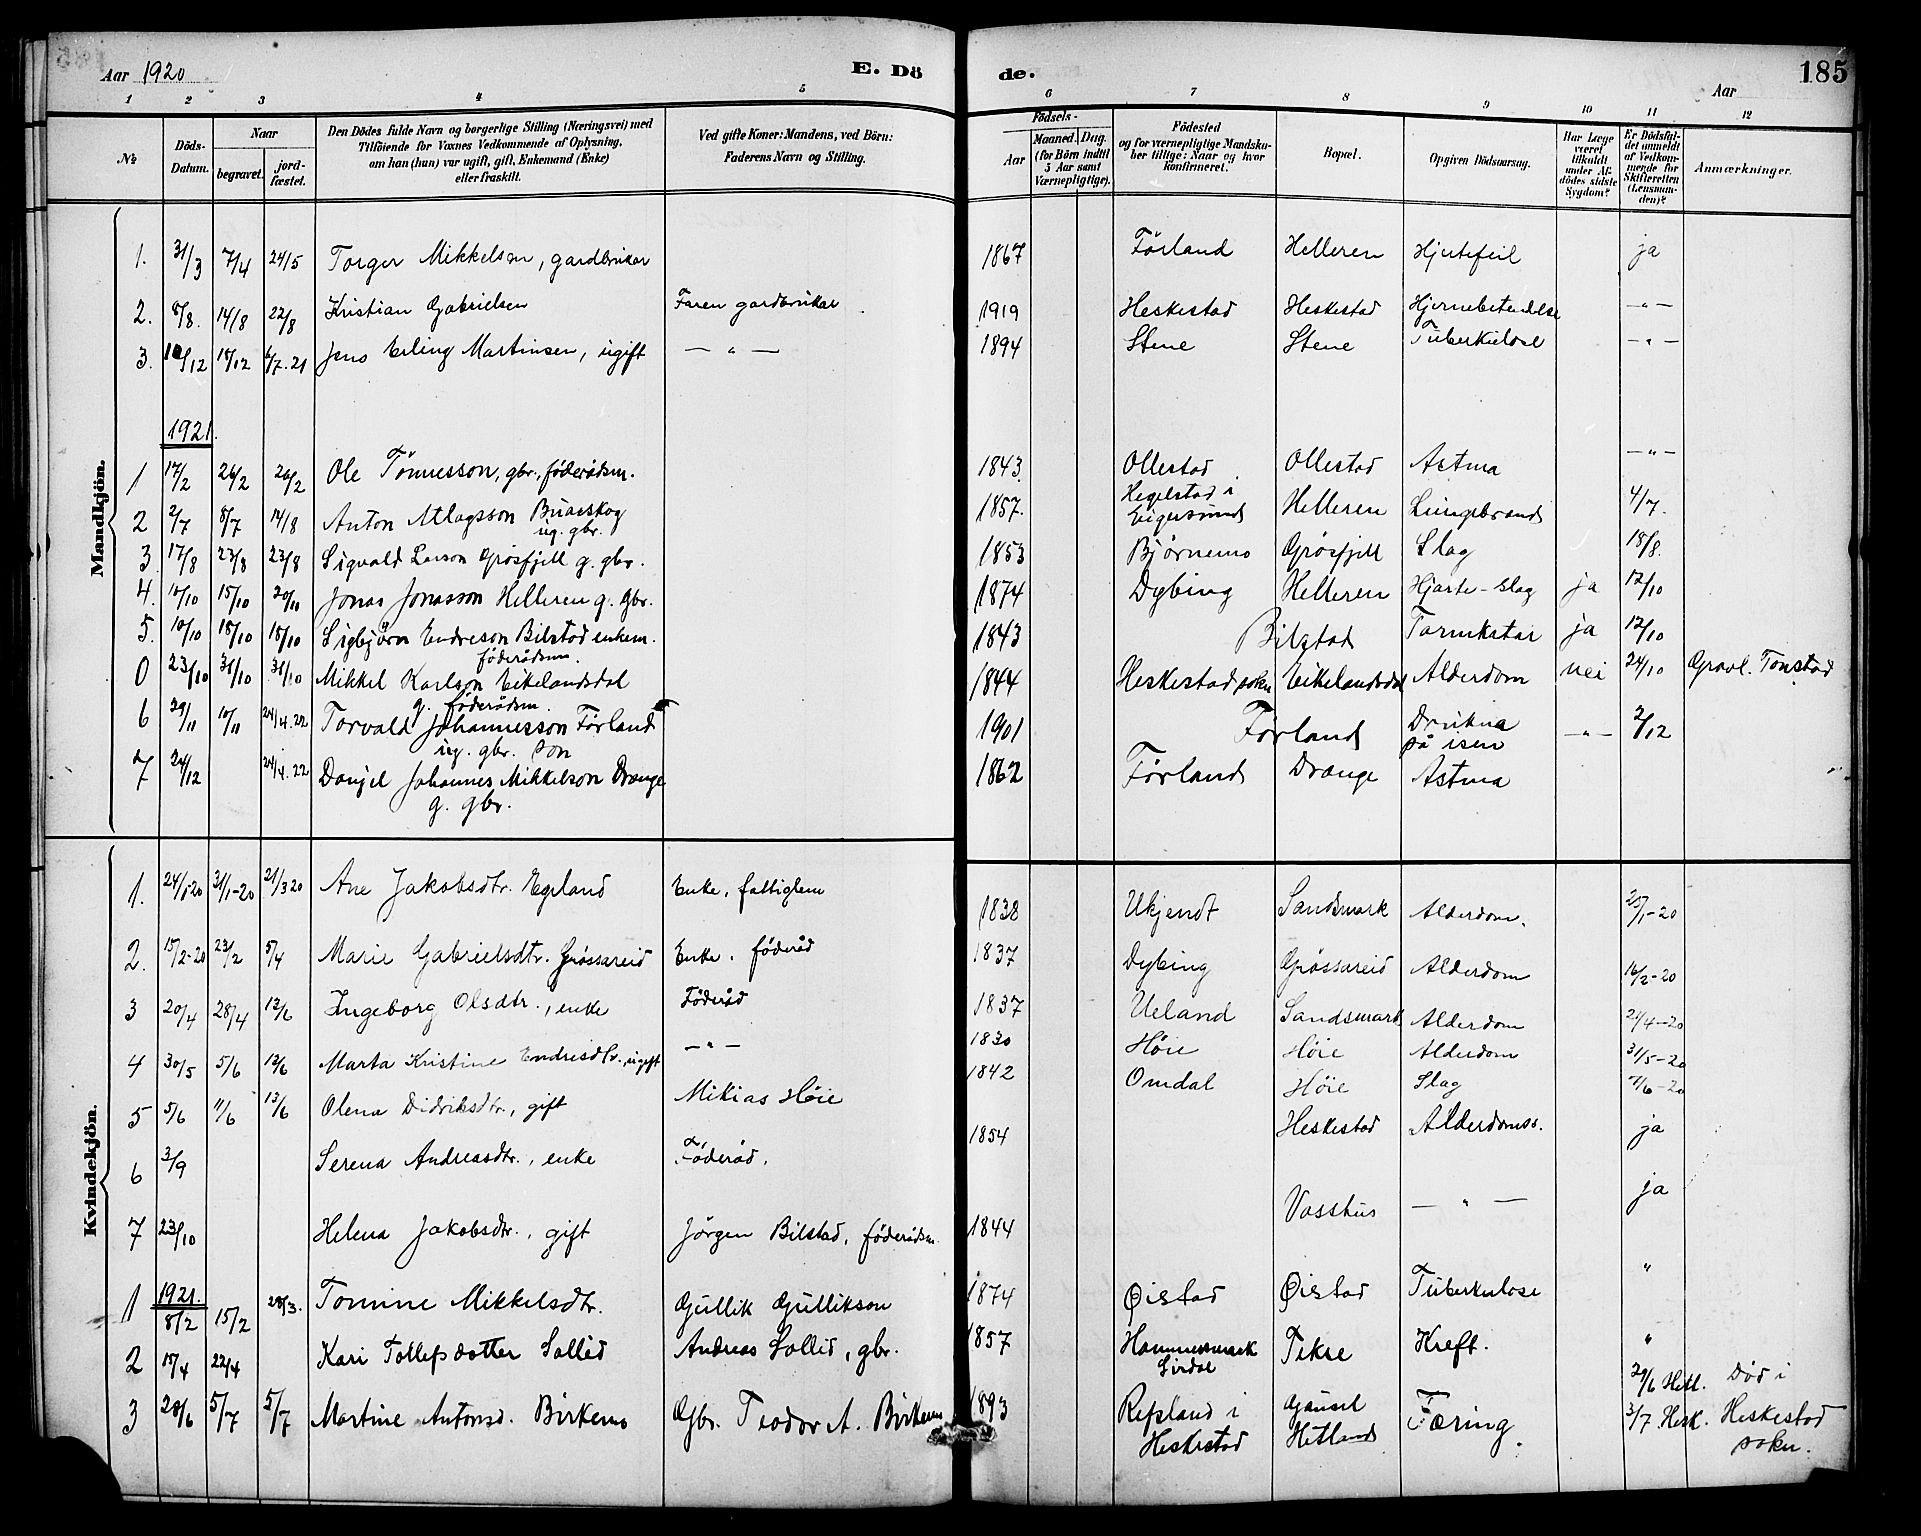 Aar 1920
E. Dö
de.
Aar
185
1 2 3 4 5 6 7 8 9 10 11 12
№
Döds-Datum.
Naar
begravet.
jord-fæstet.
Den Dödes fulde Navn og borgerlige Stilling (Næringsvei) med
Tilföiende for Voxnes Vedkommende af Oplysning,
om han (hun) var ugift, gift, Enkemand (Enke)
eller fraskilt.
Ved gifte Koner: Mandens, ved Börn:
Faderens Navn og Stilling.
Födsels-
Aar
Maaned. Dag.
(for Börn indtil
5 Aar samt
Værnepligtige).
Födested
og for værnepligtige Mandska-
ber tillige: Naar og hvor
konfirmeret.
Bopæl.
Opgiven Dödsaarsag.
Har Læge
været
tilkaldt
under Af-
dödes sidste
Sygdom?
Er Dödsfal-
det anmeldt
af Vedkom-
mende for
Skifteretten
(Lensman-
den)?
Anmærkninger.
Mandkjön.
1. 31/3 7/4 24/5 Torger Mikkelsen, gardbrukar 1867 Førland Helleren Hjertefeil ja
2. 8/8. 14/8 22/8 Kristian Gabrielsen Faren gardbrukar 1919 Heskestad Heskestad Hjernebetendelse — " —
3. 10/12 18/12 6/7.21 Jens Erling Martinsen, ugift — " — 1894 Stene Stene Tuberkulose — " —
1921.
1 17/2 26/2 26/2 Ole Tönnesson, gbr., föderådsm. 1843. Ollestad Ollestad Astma — " —
2 2/7 8/7 14/8 Anton Atlagsson Buarskog ug. gbr. 1857. Hegelstad i Eigersund Helleren Lungebrand 4/7.
3 17/8 23/8 23/8 Sigvald Larson Grøsfjell g. gbr. 1853 Bjørnemo Grøsfjell Slag 18/8.
4. 10/10 15/10 20/10 Jonas Jonasson Helleren g. gbr. 1874 Dybing Helleren Hjarte-slag ja 12/10
5. 10/10 18/10 18/10 Sigbjörn Endreson Bilstad enkem. föderådsm. 1843 Bilstad Tarmkatar ja 12/10
0 23/10 31/10 31/10 Mikkel Karlson Eikelandsdal g. föderådsm. 1844 Heskestad sokn Eikelandsdal Alderdom nei 24/10 Gravl. Tonstad
6 29/11 10/11 24/4.22 Torvald Johannesson Førland ug. gbr. son 1901 Førland Drukna på isen — " — 2/12
7 24/12 24/4.22 Danjel Johannes Mikkelson Drange g. gbr. 1862 Førland Drange Astma
Kvindekjön.
1. 24/1-20 31/1-20 21/3 20 Ane Jakobsdtr. Egeland Enke, fattiglem 1838 Ukjendt Sandsmark Alderdom. 25/1-20
2. 15/2-20 23/2 5/4 Marie Gabrielsdtr. Grøssareid Enke. föderåd 1837 Dybing Grøssareid Alderdom 16/2-20
3 20/4 28/4 12/6 Ingeborg Olsdtr., enke Föderåd 1837 Ueland Sandsmark Alderdom 21/4-20
4 30/5 5/6 12/6 Marta Kristine Endresdtr. ugift — " — 1830 Höie Höie Alderdom 31/5-20
5 5/6 11/6 13/6 Olena Didriksdtr., gift Mikias Höie 1842 Omdal Höie Slag 7/6-20
6 3/9 Serena Andreasdtr., enke Föderåd. 1854 Heskestad Alderdomss. ja
7 23/10 Helena Jakobsdtr., gift Jörgen Bilstad, föderådsm. 1844 Vasshus — " — ja
1921.
1 8/2 15/2 28/3. Tomine Mikkelsdtr. Gullik Gullikson 1874 Øistad Øistad Tuberkulose "
2 15/4 22/4 Kari Tollefsdotter Sollid Andreas Sollid, gbr. 1857 Hammersmark Sirdal Tekse Kreft. "
3 28/6 5/7 5/7 Martine Antonsd. Birkemo Gbr. Teodor A. Birkemo 1893 Refsland i Heskestad Gausel Hetland Tæring. 29/6 Hetl. 3/7 Hesk. Död i Heskestad sokn.